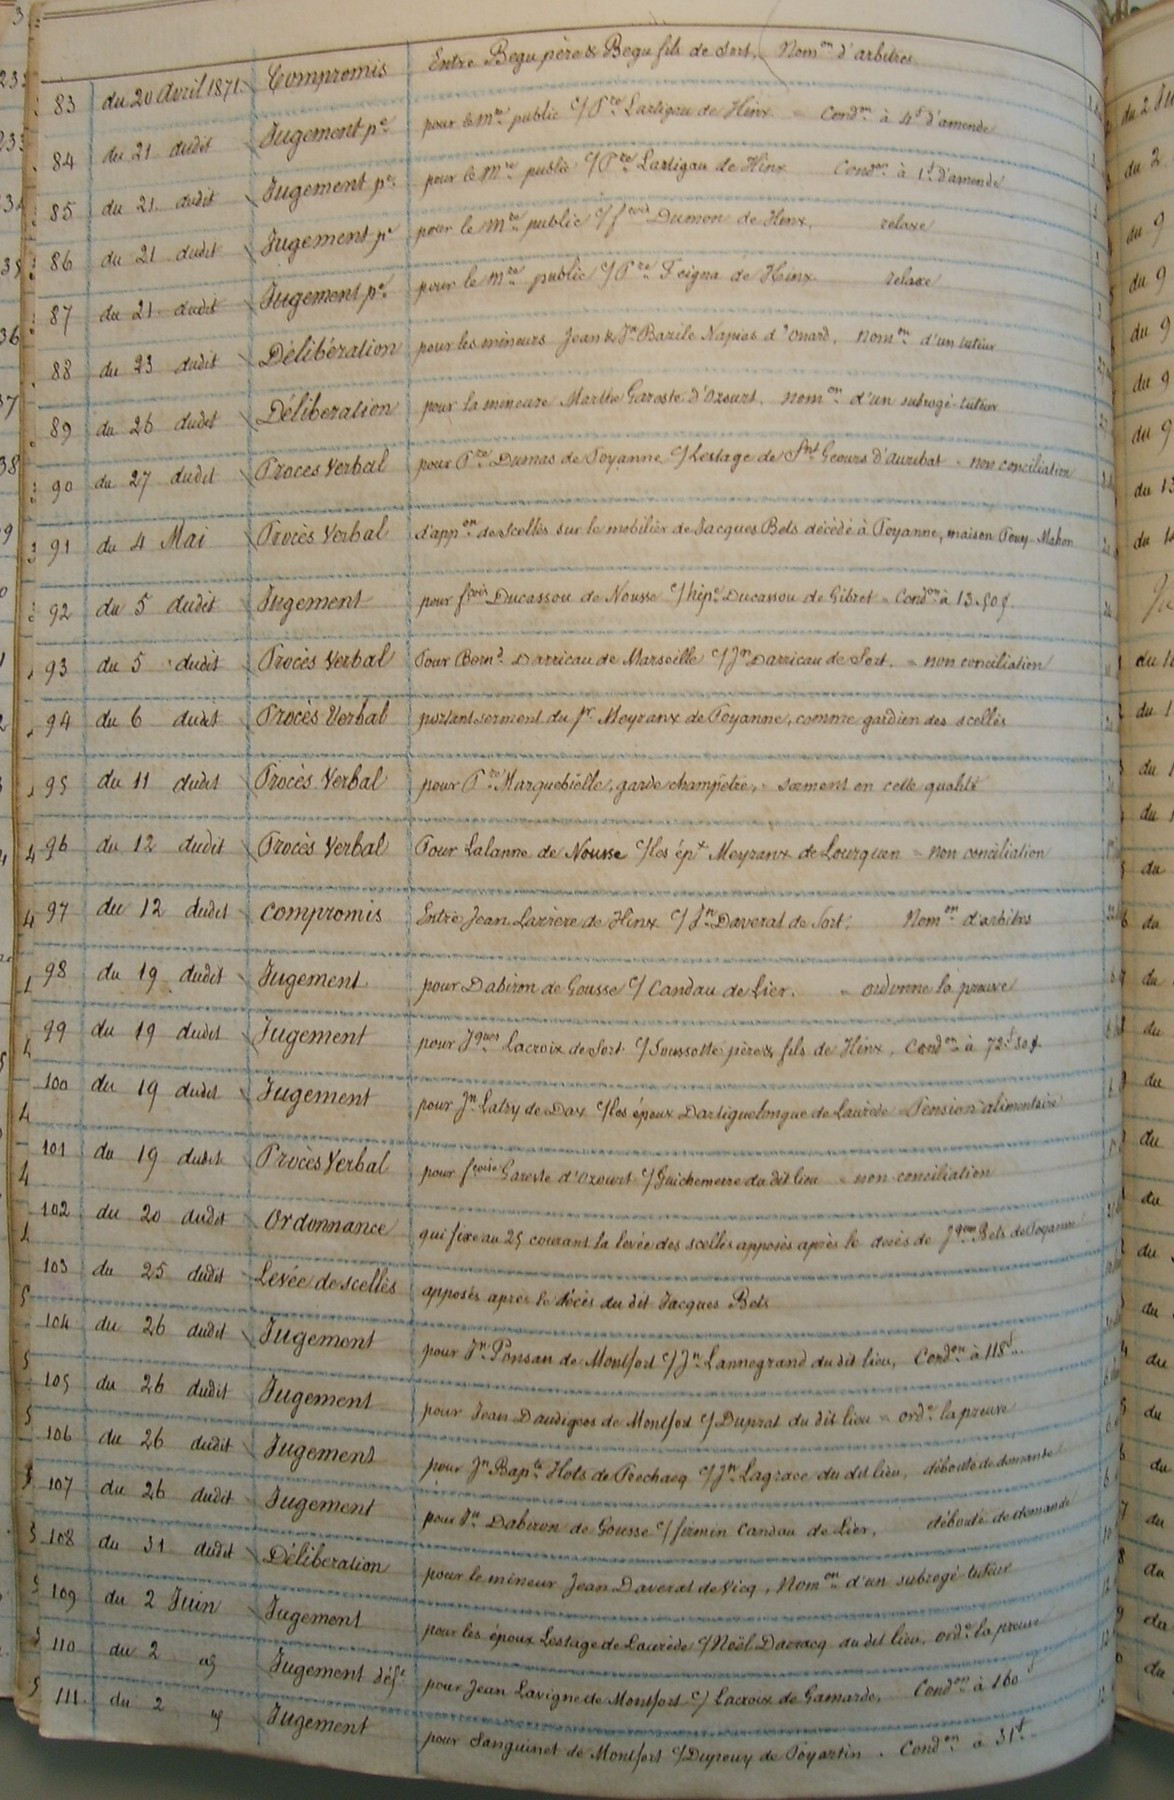 83 du 20 Avril 1871 Compromis Entre Begu père & Begu fils de Sort, Nom.on d'arbitres
84 du 21 dudit Jugement pce pour le Mre public c/ Pre Lartigau de Hinx = Condon à 4f d'amende
85 du 21 dudit Jugement pce pour le Mre public c/ Pre Lartigau de Hinx Condon à 1f d'amende
86 du 21 dudit Jugement pce pour le Mre public c/ fcois Dumon de Hinx, relaxe
87 du 21 dudit Jugement pce pour le Mre public c/ Pre Feigna de Hinx relaxe
88 du 23 dudit Délibération pour les mineurs Jean & Jn Bazile Napias d'Onard, Nomon d'un tuteur
89 du 26 dudit Déliberation pour la mineure Marthe Gareste d'Ozourt, nomon d'un subrogé-tuteur
90 du 27 dudit Proces Verbal pour Pre Dumas de Poyanne c/ Lestage de Snt Geours d'Auribat = non conciliation
91 du 4 Mai Procès Verbal d'appon de Scellés sur le mobilier de Jacques Bets décédé à Poyanne, maison Pouy-Mahon
92 du 5 dudit Jugement pour fcois Ducassou de Nousse c/ hipe Ducassou de Gibret = Condon à 13.50c
93 du 5 dudit Procès Verbal Pour Bernd Darricau de Marseille c/ Jn Darricau de Sort. = non conciliation
94 du 6 dudit Procès Verbal portant serment du sr Meyranx de Poyanne, comme gardien des scellés
95 du 11 dudit Procès Verbal pour Pre Marquebielle, garde champêtre, = serment en cette qualité
96 du 12 dudit Procès Verbal Pour Lalanne de Nousse c/ les épx Meyranx de Lourquen = Non conciliation
97 du 12 dudit Compromis Entre Jean Larrère de Hinx c/ Jn Daverat de Sort. Nomon d'arbitres
98 du 19 dudit Jugement pour Dabiron de Gousse c/ Candau de Lier. = ordonne la preuve
99 du 19 dudit Jugement pour Jques Lacroix de Sort c/ Soussotte père & fils de Hinx, Condon à 72f 50c
100 du 19 dudit Jugement pour Jn Latry de Dax c/ les époux Dartiguelongue de Laurède = Pension alimentaire
101 du 19 dudit Procès Verbal pour fcoise Gareste d'Ozourt c/ Guichemerre du dit lieu = non conciliation
102 du 20 dudit Ordonnance qui fixe au 25 courant la levée des scellés apposés après le décès de Jques Bets de Poyanne
103 du 25 dudit Levée de scellés apposés après le décès du dit Jacques Bets
104 du 26 dudit Jugement pour Jn Ponsan de Montfort c/ Jn Lannegrand du dit lieu, Condon à 118f
105 du 26 dudit Jugement pour Jean Daudigeos de Montfort c/ Duprat du dit lieu = orde la preuve
106 du 26 dudit Jugement pour Jn Bapte Hots de Poechacq c/ Jn Lagrace du dit lieu, débouté de demande
107 du 26 dudit Jugement pour Jn Dabiron de Gousse c/ firmin Candau de Lier, débouté de demande
108 du 31 dudit Déliberation pour le mineur Jean Daverat de Vicq, Nomon d'un subrogé-tuteur
109 du 2 Juin Jugement pour les époux Lestage de Laurède c/ Noël Darracq du dit lieu, orde la preuve
110 du 2 Jugement déft pour Jean Lavigne de Montfort c/ Lacroix de Gamarde, Condon à 160f
111. du 2 Jugement pour Sanguinet de Montfort c/ Dupouy de Poyartin. Condon à 31f